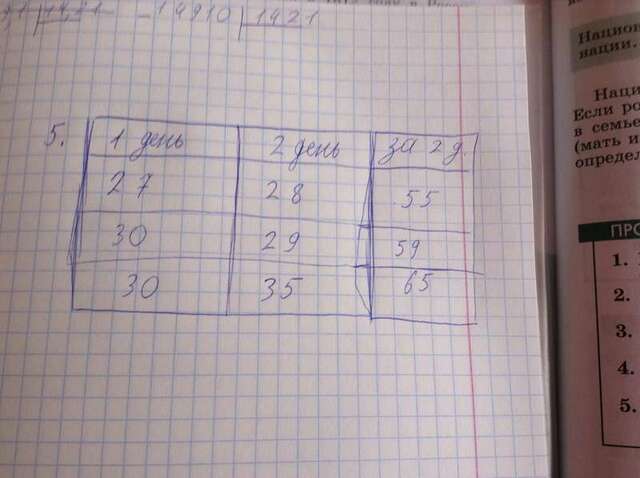 - 14910 | 1421
5. 1 день 2 день за 2 д.
27 28 55
30 29 59
30 35 65
Национ
нации.
Наци
Если ро
в семье
(мать и
определ
ПРО
1.
2.
3.
4.
5.